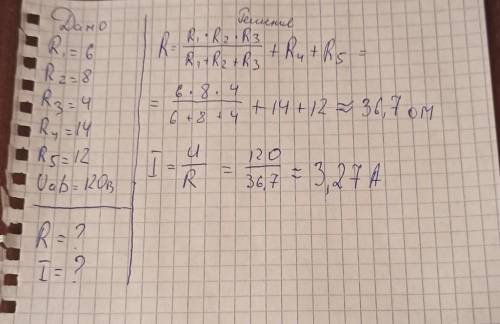 Дано
R₁ = 6
R₂ = 8
R₃ = 4
R₄ = 14
R₅ = 12
Uab = 120в
R = ?
I = ?
Решение
R = R₁ · R₂ · R₃ / R₁ + R₂ + R₃ + R₄ + R₅ =
= 6 · 8 · 4 / 6 + 8 + 4 + 14 + 12 ≈ 36,7 ом
I = U / R = 120 / 36,7 ≈ 3,27 А